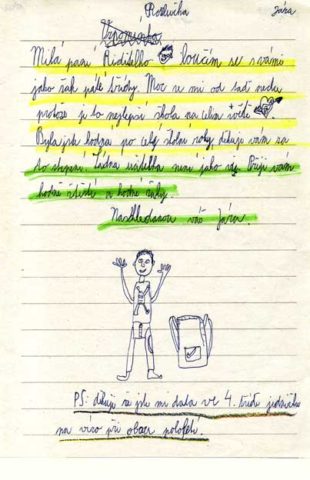 Rozlučka Jára
Vzpomínka
Milá paní Ředitelko loučím se s vámi
jako žák páté třídy. Moc se mi od sud nechce
protože je to nejlepší škola na celém světě
Byla jste hodná po celý školní roky děkuji vám za
to stejně. Žádná ředitelka není jako vy. Přeji vám
hodně štěstí a hodně
Nashledanou váš Jára.
PS: děkuji že jste mi dala ve 4. třídě jedničku
na víc při obou pololetí.